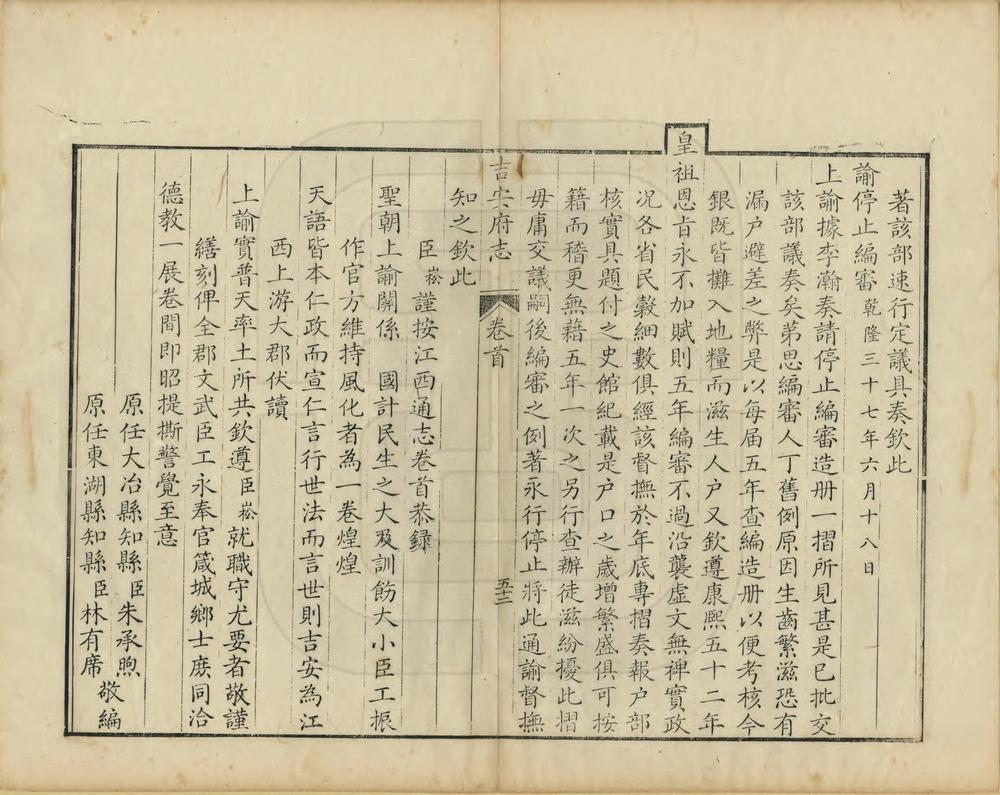 著該部速行定議具奏欽此
諭停止編審乾隆三十七年六月十八日
上諭據李瀚奏請停止編審造册一摺所見甚是已批交
該部議奏矣第思編審人丁舊例原因生齒繁滋恐有
漏户避差之弊是以每届五年查編造册以便考核今
銀既皆攤入地糧而滋生人户又欽遵康熙五十二年
皇祖恩旨永不加賦則五年編審不過沿襲虚文無裨實政
况各省民穀細數俱經該督撫於年底專摺奏報户部
核實具題付之史館紀載是户口之歲增繁盛俱可按
籍而稽更無藉五年一次之另行查辦徒滋紛擾此摺
毋庸交議嗣後編審之例著永行停止將此通諭督撫
吉安府志
卷首
五十二
知之欽此
臣崧謹按江西通志卷首恭録
聖朝上諭關係 國計民生之大及訓飭大小臣工振
作官方維持風化者為一卷煌煌
天語皆本仁政而宣仁言行世法而言世則吉安為江
西上游大郡伏讀
上諭實普天率土所共欽遵臣崧就職守尤要者敬謹
繕刻俾全郡文武臣工永奉官箴城鄉士庶同洽
德教一展卷間即昭提撕警覺至意
原任大冶縣知縣臣朱承煦
原任東湖縣知縣臣林有席
敬編